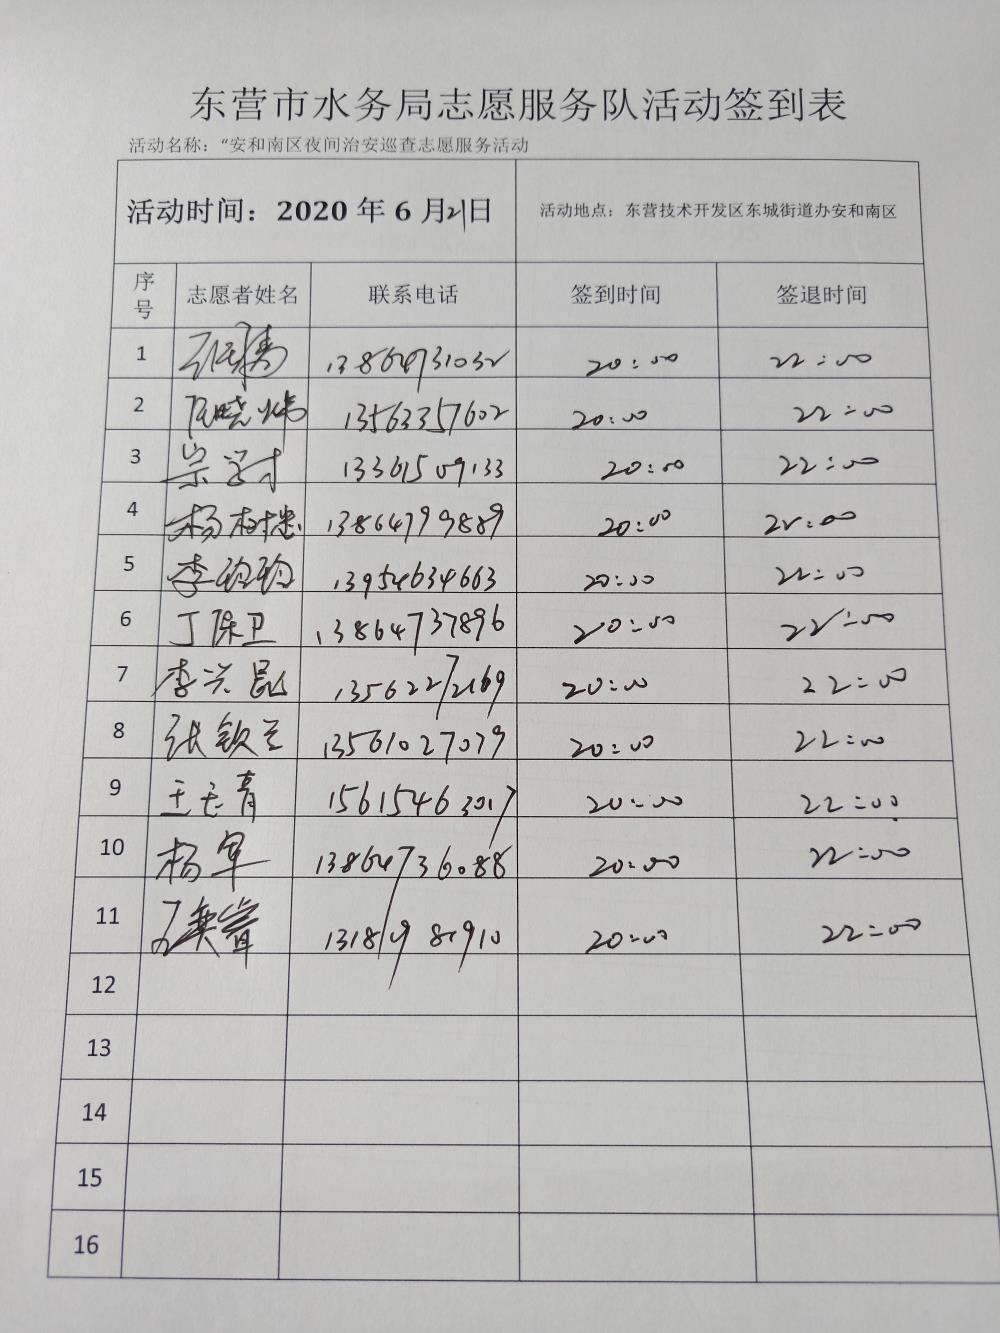 东营市水务局志愿服务队活动签到表
活动名称："安和南区夜间治安巡查志愿服务活动
活动时间：2020年6月21日 活动地点：东营技术开发区东城街道办安和南区
序号 志愿者姓名 联系电话 签到时间 签退时间
1 13864731032 20:00 22:00
2 13563357602 20:00 22:00
3 宗学才 13361509133 20:00 22:00
4 杨树 13864799889 20:00 22:00
5 李 13954634663 20:00 22:00
6 丁保卫 13864737896 20:00 22:00
7 李兴昆 13562272169 20:00 22:00
8 张钦兰 13561027079 20:00 22:00
9 王玉青 15615463017 20:00 22:00
10 杨军 13864736088 20:00 22:00
11 20:00 22:00
12
13
14
15
16